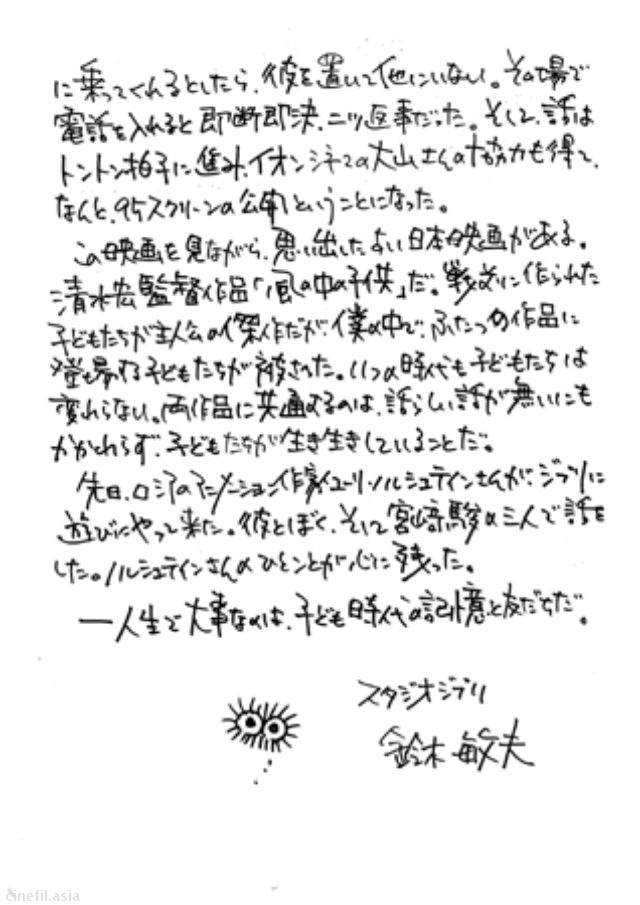 に乗ってくれるとしたら、彼を置いて他にいない。その場で
電話を入れると即断即決、二ツ返事だった。そして、話は
トントン拍子に進み、イオンシネマの大山さんの協力も得て、
なんと、95スクリーンの公開ということになった。
この映画を見ながら、思い出した古い日本映画がある。
清水宏監督作品「風の中の子供」だ。戦前に作られた
子どもたちが主人公の傑作だが、僕の中で、ふたつの作品に
登場する子どもたちが被さった。いつの時代も子どもたちは
変わらない。両作品に共通するのは、話らしい話が無いにも
かかわらず、子どもたちが生き生きしていることだ。
先日、ロシアのアニメーション作家ユーリ・ノルシュテインさんが、ジブリに
遊びにやって来た。彼とぼく、そして宮崎駿の三人で話を
した。ノルシュテインさんのひとことが心に残った。
―人生で大事なのは、子ども時代の記憶と友だちだ。
スタジオジブリ
鈴木敏夫
cinefil.asia